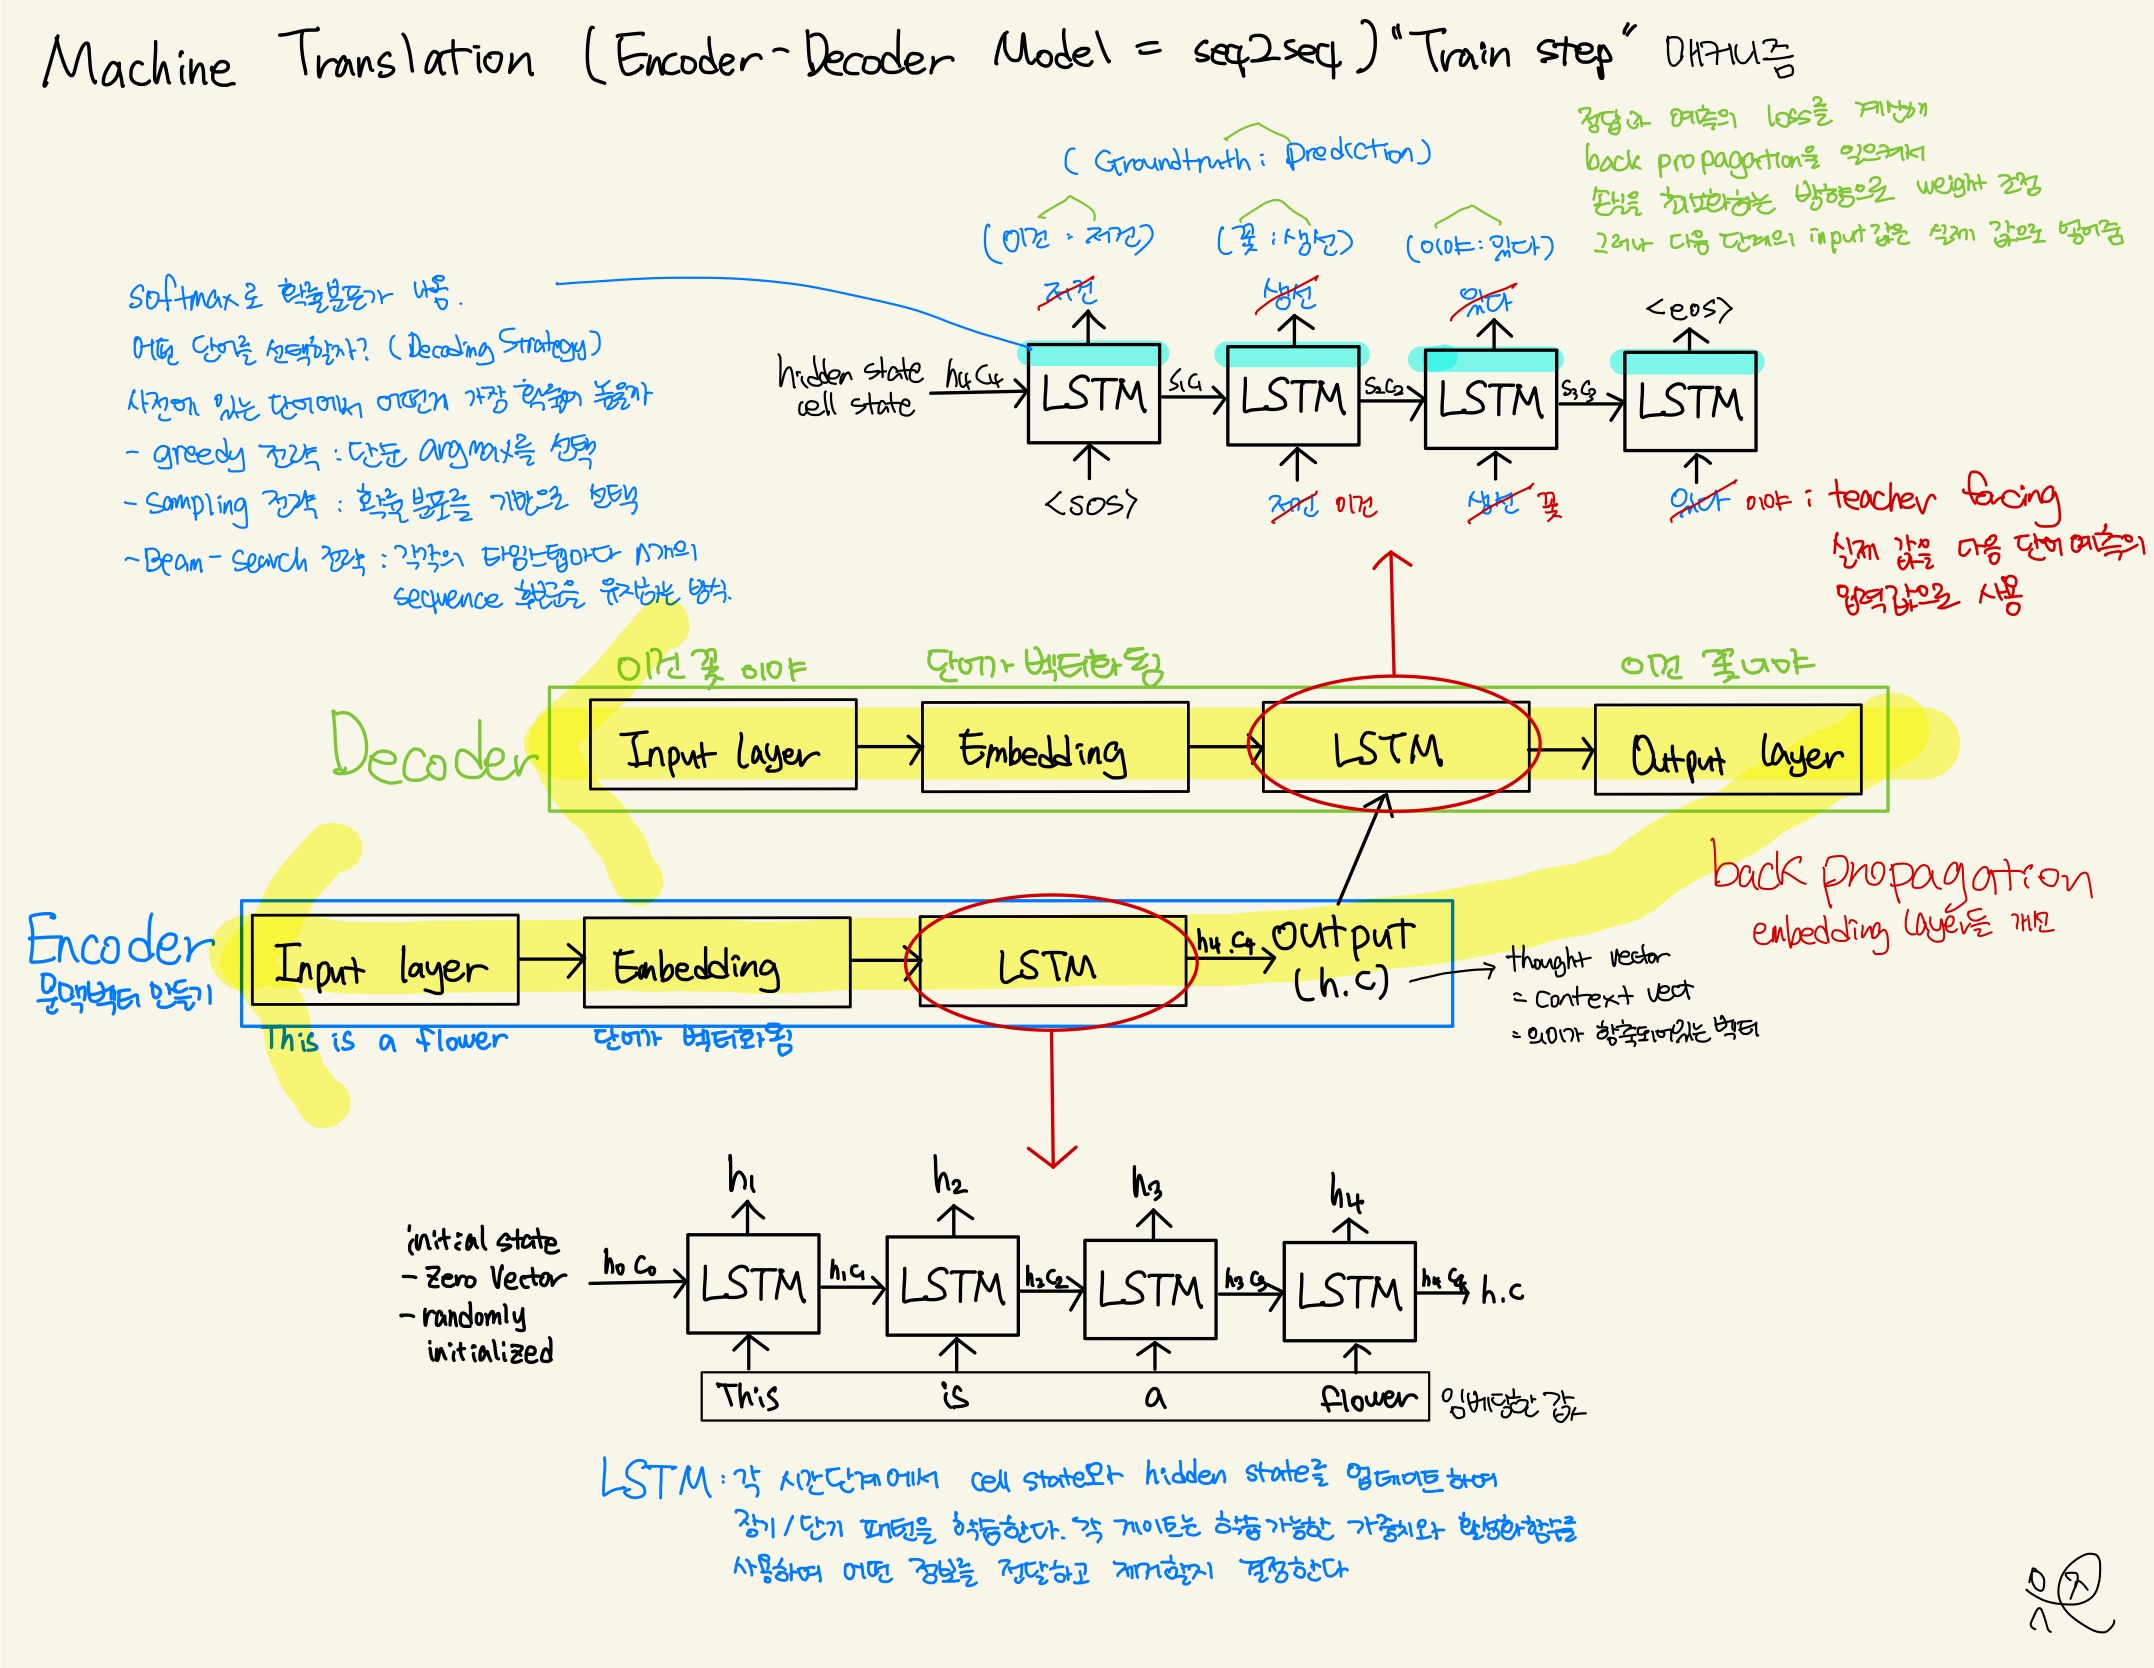 Machine Translation (Encoder-Decoder Model = seq2seq) "Train step" 매커니즘
정답과 예측의 loss를 계산해
back propagation을 일으켜서
손실을 최소화하는 방향으로 weight 조정
그러나 다음 단계의 input값은 실제 값으로 넣어줌
(Groundtruth : prediction)
(이건 : 저건)
(꽃 : 생선)
(이야 : 있다)
저건
생선
있다
<eos>
softmax로 확률분포가 나옴.
어떤 단어를 선택할까? (Decoding Strategy)
사전에 있는 단어에서 어떤게 가장 확률이 높을까
- greedy 전략 : 단순 argmax를 선택
- Sampling 전략 : 확률 분포를 기반으로 선택
- Beam-search 전략 : 각각의 타임스텝마다 n개의
sequence 확률을 유지하는 방식.
hidden state
cell state
h4 C4
LSTM
S1 C1
LSTM
S2 C2
LSTM
S3 C3
LSTM
<sos>
저건 이건
생선 꽃
있다 이야 : teacher facing
실제 값을 다음 단어 예측의
입력값으로 사용
이건 꽃 이야
단어가 벡터화 됨
이건 꽃이야
Decoder
Input layer
Embedding
LSTM
Output layer
back propagation
embedding layer들 개선
Encoder
문맥벡터 만들기
Input layer
Embedding
LSTM
h4.C4
output
(h.c)
thought vector
= context vect
= 의미가 함축되어있는 벡터
This is a flower
단어가 벡터화됨
h1
h2
h3
h4
initial state
- Zero Vector
- randomly
initialized
h0 C0
LSTM
h1 C1
LSTM
h2 C2
LSTM
h3 C3
LSTM
h4 C4
h.c
This
is
a
flower
임베딩한 값
LSTM : 각 시간단계에서 cell state와 hidden state를 업데이트하여
장기/단기 패턴을 학습한다. 각 게이트는 학습가능한 가중치와 활성화함수를
사용하여 어떤 정보를 전달하고 제거할지 결정한다